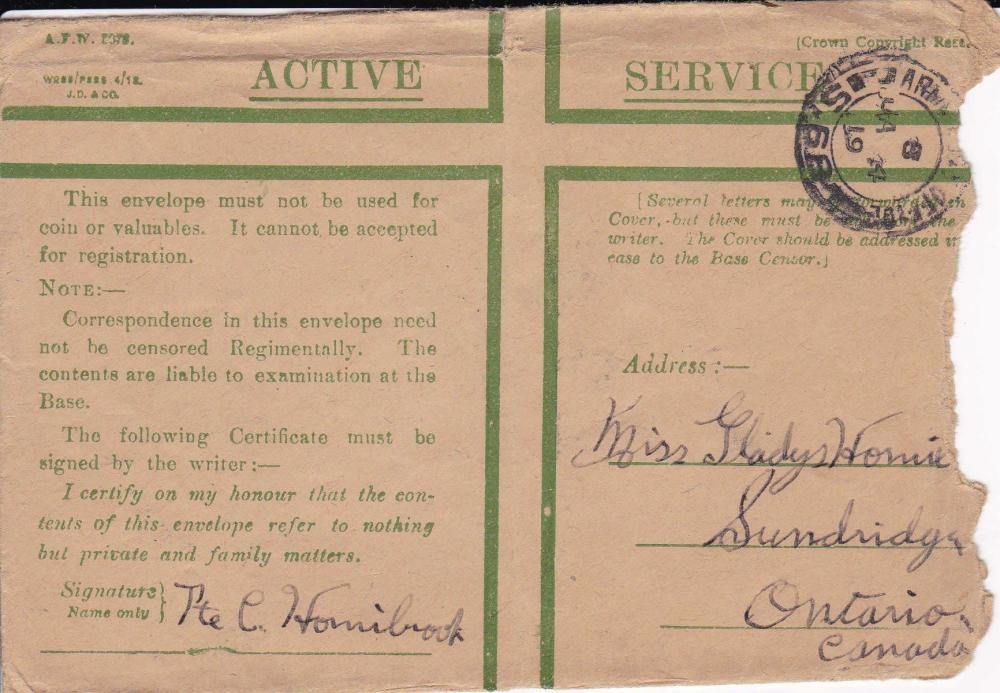 A.F.W. 2078.
(Crown Copyright Rese
J.D. & CO.
ACTIVE SERVICE
ARM
8
19
S 68
This envelope must not be used for
coin or valuables. It cannot be accepted
for registration.
NOTE:—
Correspondence in this envelope need
not be censored Regimentally. The
contents are liable to examination at the
Base.
The following Certificate must be
signed by the writer:—
I certify on my honour that the con-
tents of this envelope refer to nothing
but private and family matters.
Signature
Name only
Pte C. Hornibrook
[Several letters may
Cover, but these must be the
writer. The Cover should be addressed in
case to the Base Censor.]
Address:—
Miss Gladys Hornib
Sundridge
Ontario,
Canada